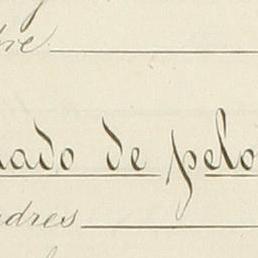 tre
nado de pelo
adres